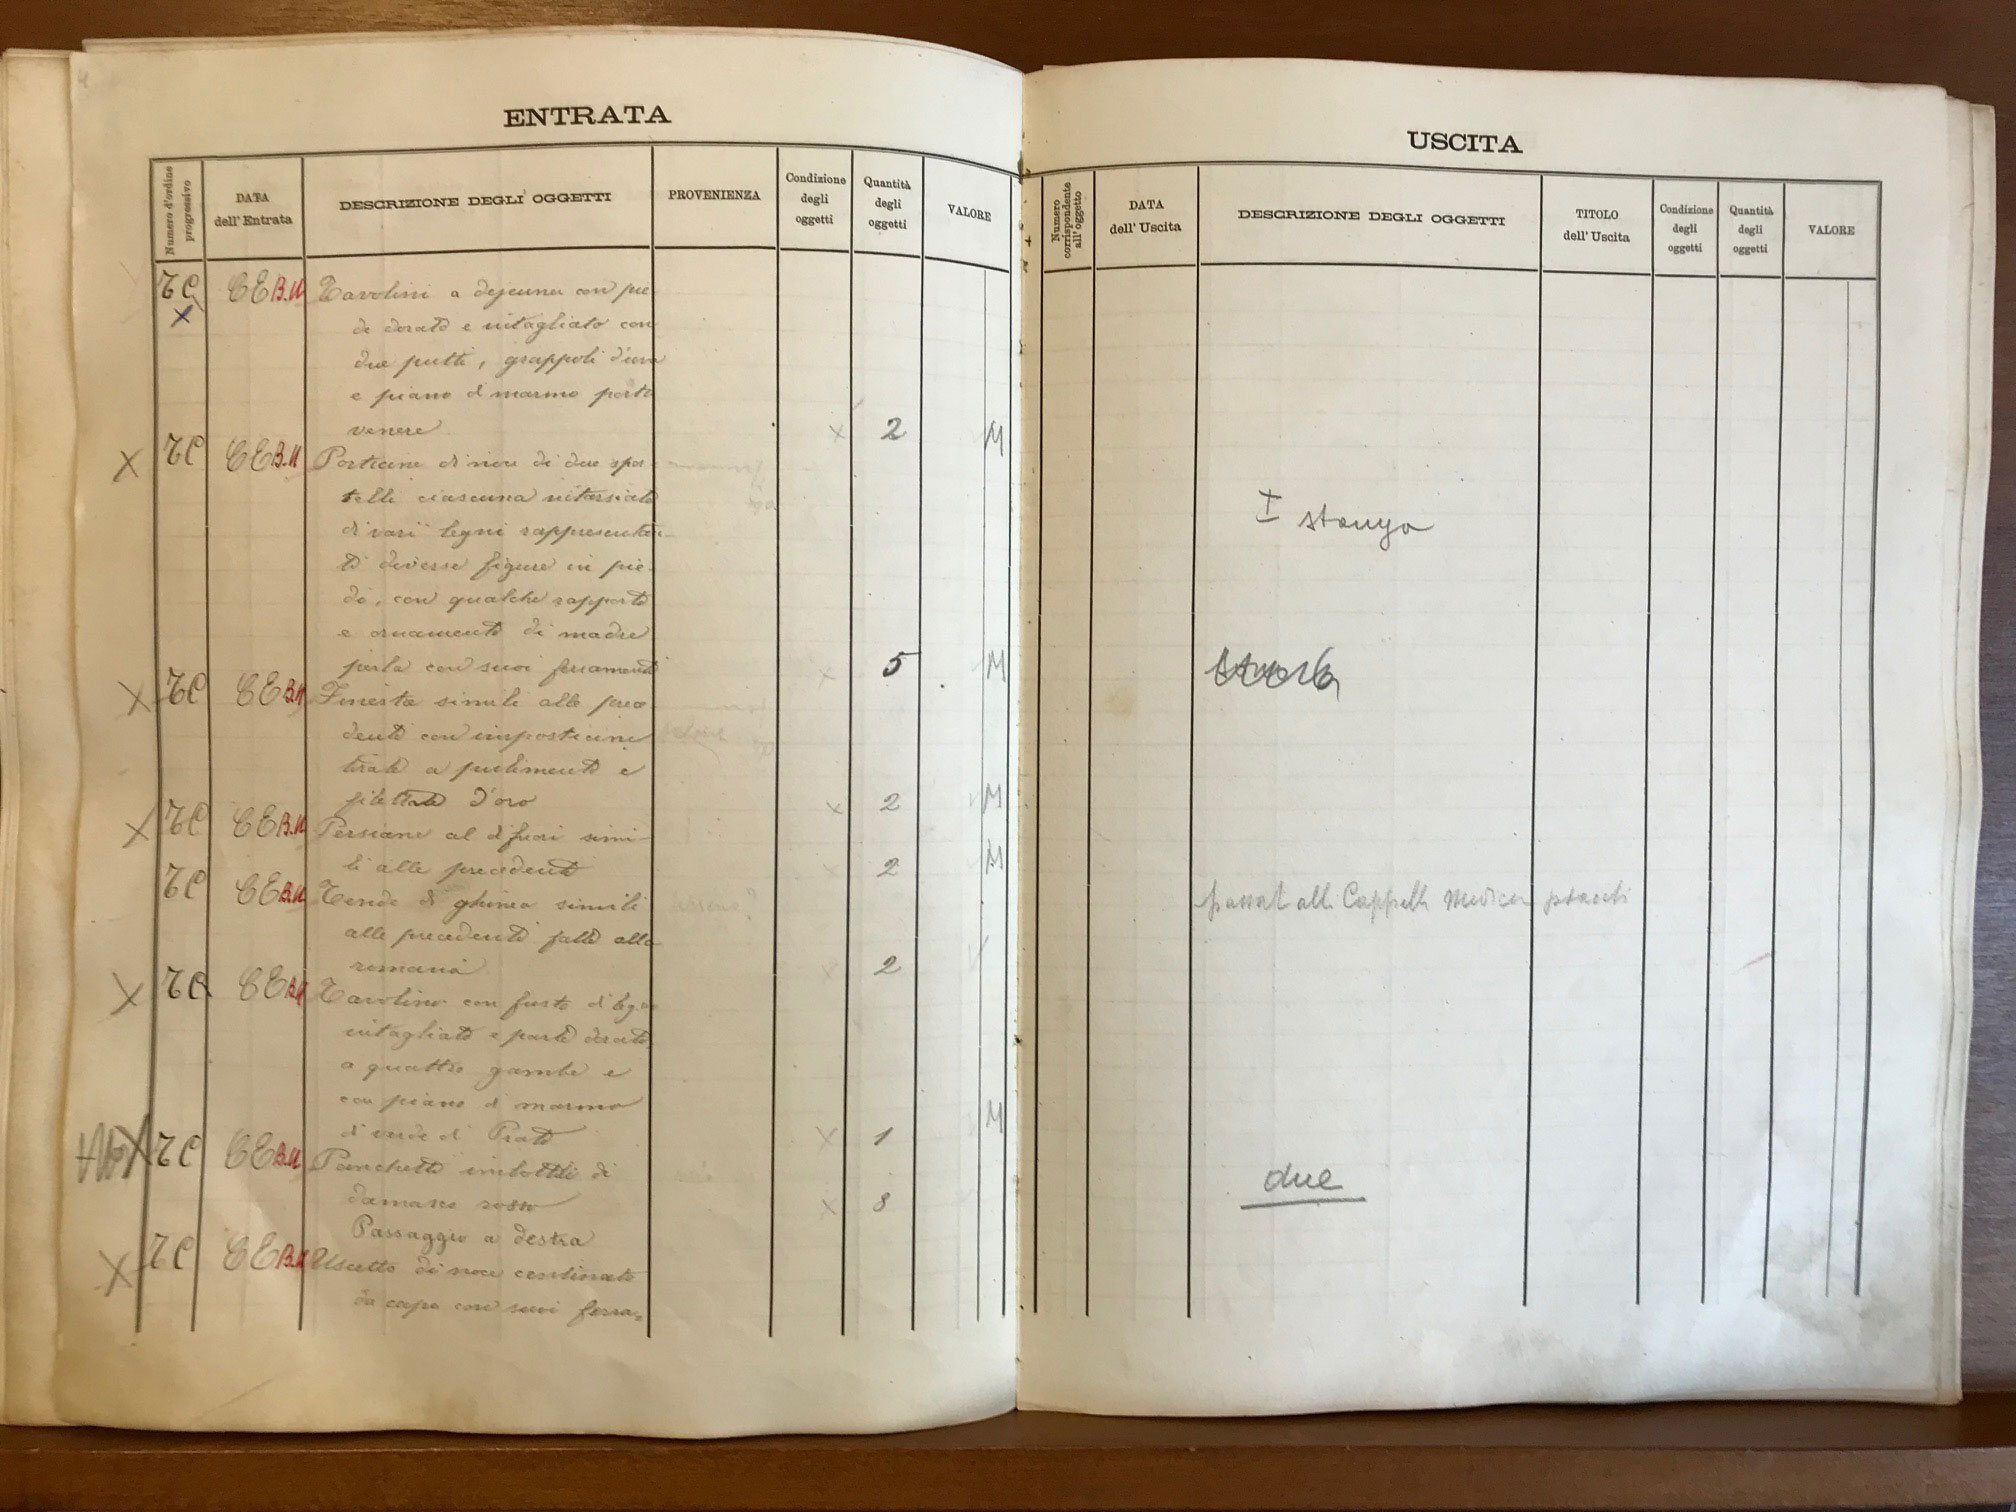 ENTRATA
Numero d'ordine progressivo
DATA dell' Entrata
DESCRIZIONE DEGLI OGGETTI
PROVENIENZA
Condizione degli oggetti
Quantità degli oggetti
VALORE
TC CE B.U Tavolini a dejeuner con pie
X
de dorato e intagliato con
due putti, grappoli d'uva
e piano di marmo porto
venere X 2 M
X TC CE B.U Porticine di noce di due spor
telli ciascuna intarsiate
di vari legni rappresentan
ti diverse figure in pie
di, con qualche rapporto
e ornamento di madre
perla con suoi ferramenti X 5 M
X TC CE B.U Finestre simili alle prece
denti con imposticine
tirate a pulimento e
filettate d'oro X 2 M
X TC CE B.U Persiane al di fuori simi
li alle precedenti 2 M
TC CE B.U Tende di ghinea simili
alle precedenti fatte alla
romana 2
X TC CE B.U Tavolino con fusto di legno
intagliato e parte dorato,
a quattro gambe e
con piano di marmo
di verde di Prato X 1 M
X TC CE B.U Panchetti imbottiti di
damasco rosso X 8
Passaggio a destra
X TC CE B.U Uscetto di noce centinato
da capo con suoi ferra=
USCITA
Numero corrispondente all'oggetto
DATA dell' Uscita
DESCRIZIONE DEGLI OGGETTI
TITOLO dell' Uscita
Condizione degli oggetti
Quantità degli oggetti
VALORE
I stanza
alle Cappelle Medicee
due